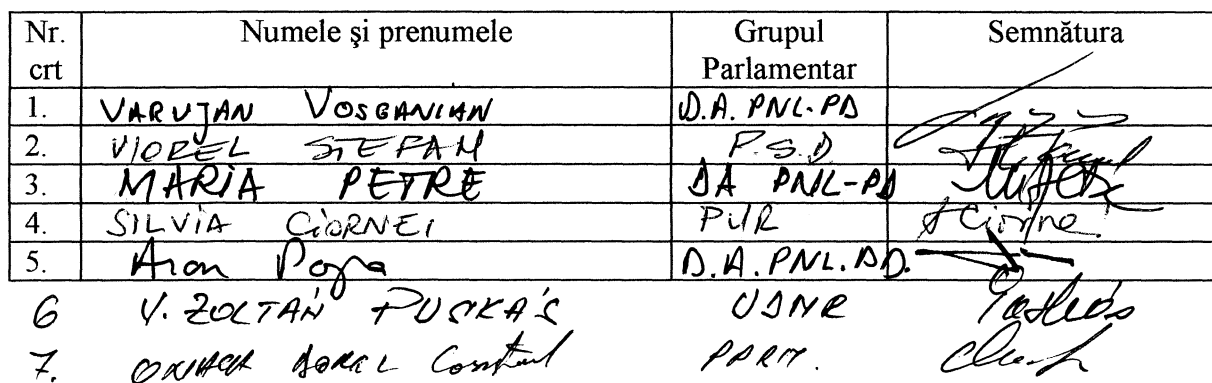 Nr. crt Numele şi prenumele Grupul Parlamentar Semnătura
1. VARUJAN VOSGANIAN D.A. PNL-PD
2. VIOREL ŞTEFAN P.S.D
3. MARIA PETRE DA PNL-PD
4. SILVIA CIORNEI PUR SCiornei
5. Aron Popa D.A. PNL.PD.
6 V. ZOLTÁN PUSKÁS UDMR
7. AUREL PPRM.